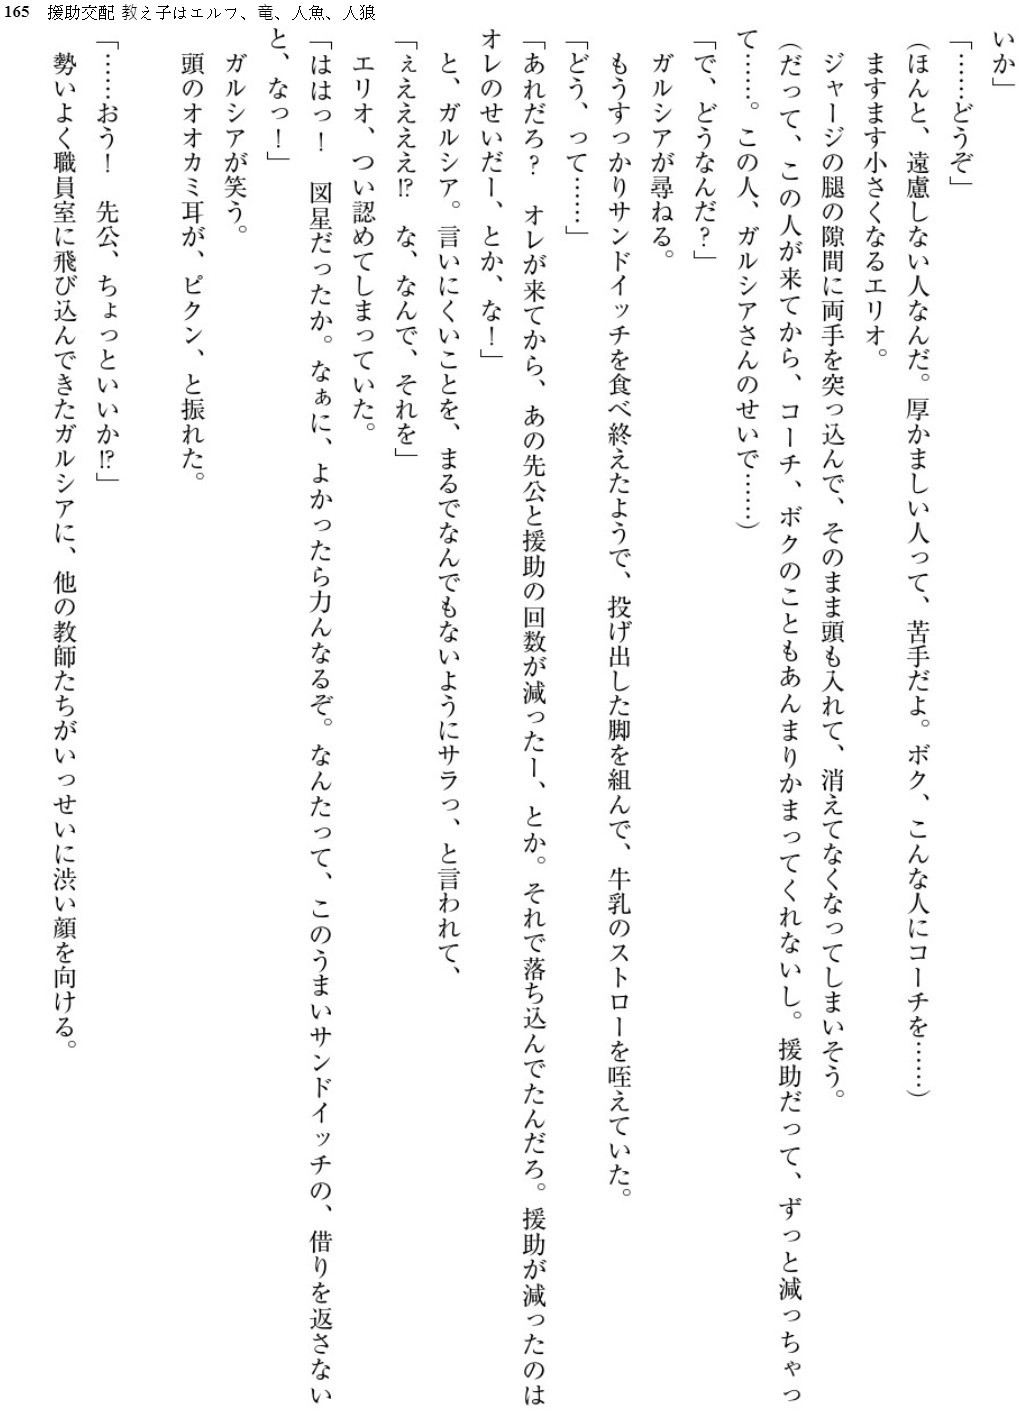 165 援助交配 教え子はエルフ、竜、人魚、人狼
いか」
「……どうぞ」
（ほんと、遠慮しない人なんだ。厚かましい人って、苦手だよ。ボク、こんな人にコーチを……）
ますます小さくなるエリオ。
ジャージの腿の隙間に両手を突っ込んで、そのまま頭も入れて、消えてなくなってしまいそう。
（だって、この人が来てから、コーチ、ボクのこともあんまりかまってくれないし。援助だって、ずっと減っちゃっ
て……。この人、ガルシアさんのせいで……）
「で、どうなんだ？」
ガルシアが尋ねる。
もうすっかりサンドイッチを食べ終えたようで、投げ出した脚を組んで、牛乳のストローを咥えていた。
「どう、って……」
「あれだろ？　オレが来てから、あの先公と援助の回数が減ったー、とか。それで落ち込んでたんだろ。援助が減ったのは
オレのせいだー、とか、な！」
と、ガルシア。言いにくいことを、まるでなんでもないようにサラっ、と言われて、
「ぇえええぇ!?　な、なんで、それを」
エリオ、つい認めてしまっていた。
「ははっ！　図星だったか。なぁに、よかったら力んなるぞ。なんたって、このうまいサンドイッチの、借りを返さない
と、なっ！」
ガルシアが笑う。
頭のオオカミ耳が、ピクン、と振れた。
「……おう！　先公、ちょっといいか!?」
勢いよく職員室に飛び込んできたガルシアに、他の教師たちがいっせいに渋い顔を向ける。